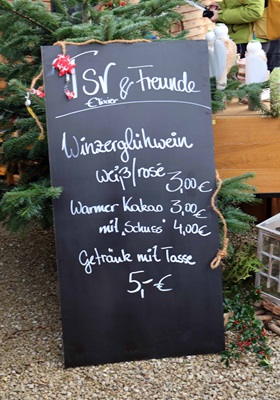 TSV & Freunde
Winzerglühwein
weiß/rosé 3,00€
Warmer Kakao 3,00€
mit "Schuss" 4,00€
Getränk mit Tasse
5,-€